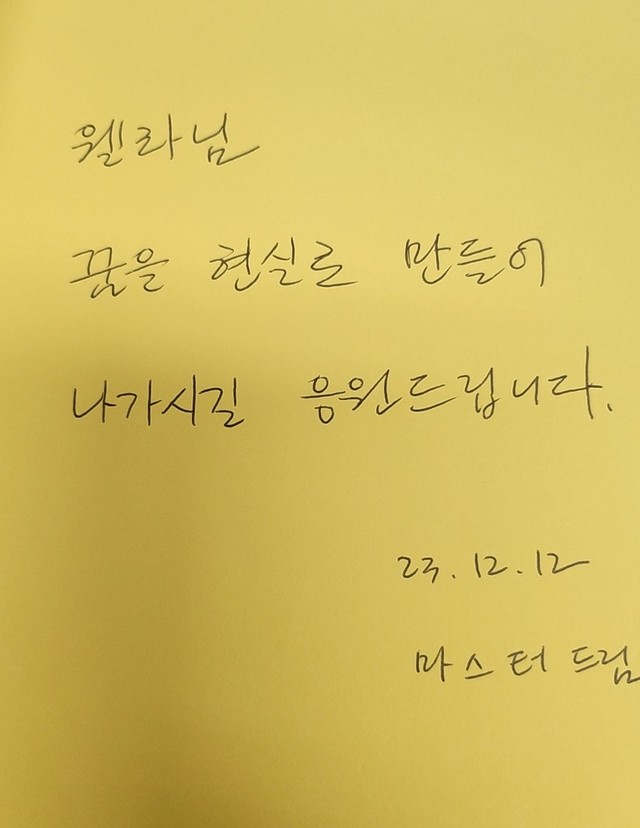 웰라님
꿈을 현실로 만들어
나가시길 응원드립니다.
23.12.12
마스터 드림